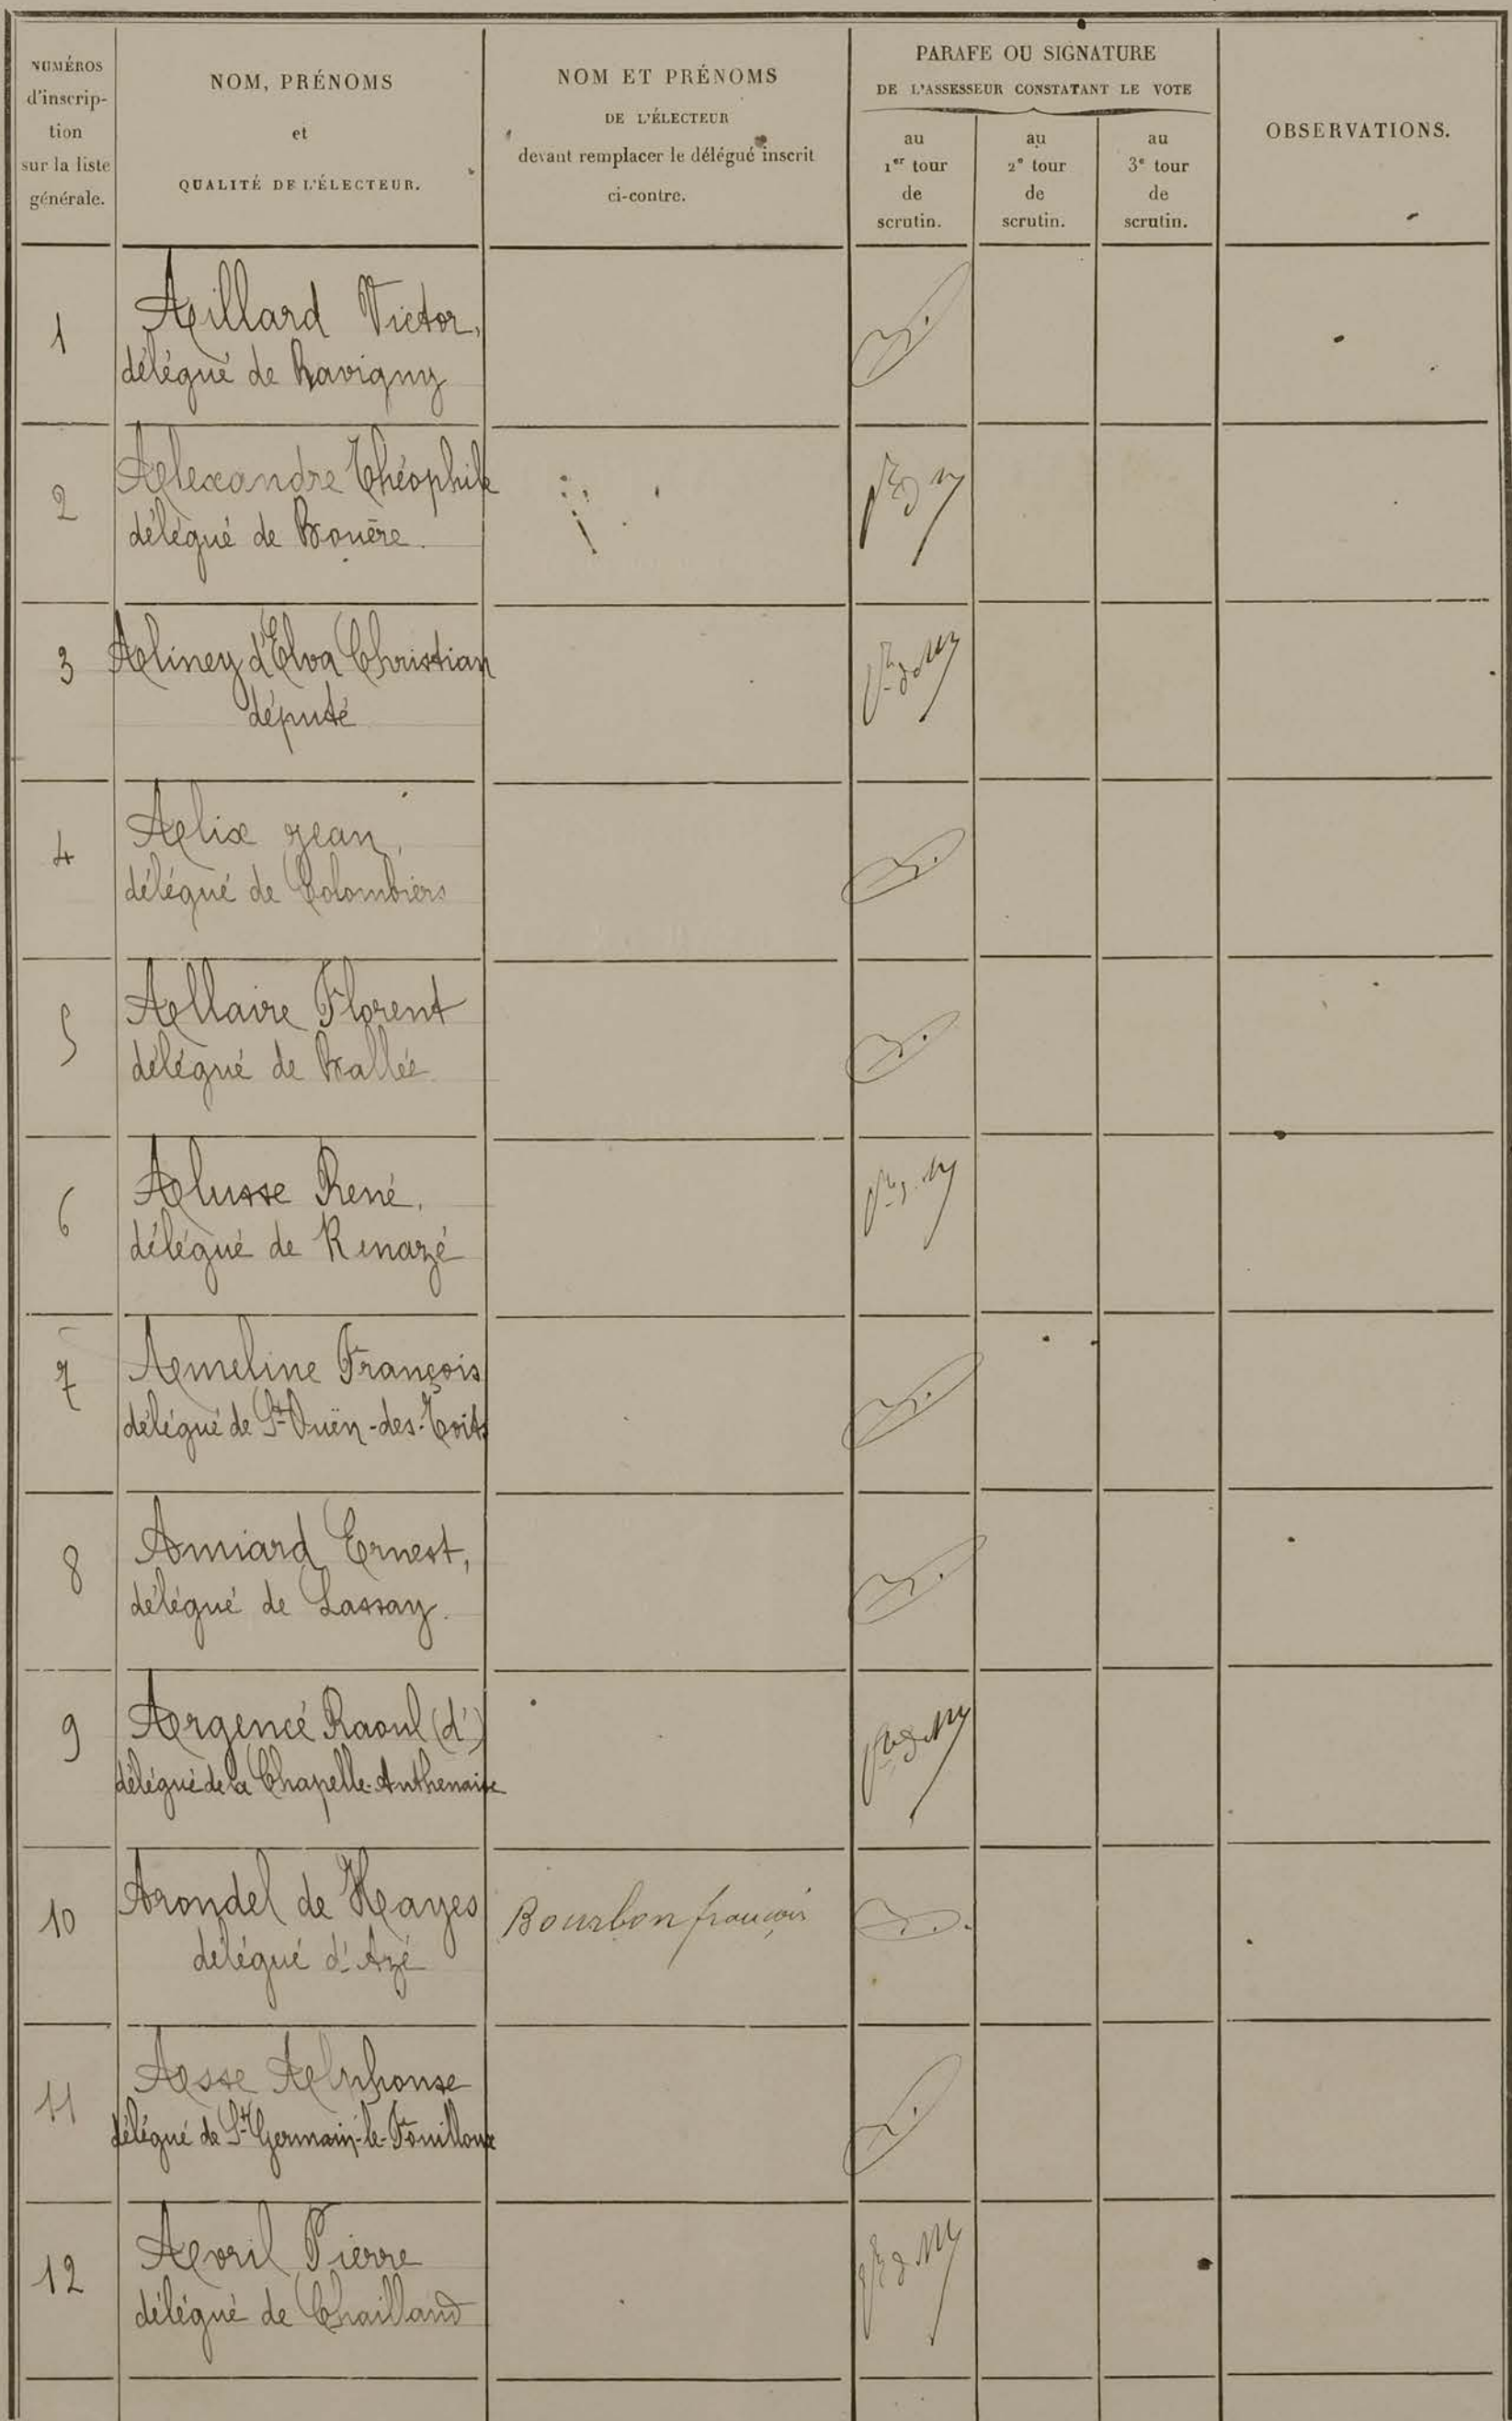 NUMÉROS
d'inscrip-
tion
sur la liste
générale.
NOM, PRÉNOMS
et
QUALITÉ DE L'ÉLECTEUR.
NOM ET PRÉNOMS
DE L'ÉLECTEUR
devant remplacer le délégué inscrit
ci-contre.
PARAFE OU SIGNATURE
DE L'ASSESSEUR CONSTATANT LE VOTE
au
1er tour
de
scrutin.
au
2e tour
de
scrutin.
au
3e tour
de
scrutin.
OBSERVATIONS.
1
Aillard Victor,
délégué de Ravigny
2
Alexandre Théophile
délégué de Bouère.
3
Aliney d'Elva Christian
député
4
Alix Jean,
délégué de Colombiers
5
Allaire Florent
délégué de Ballée
6
Alusse René,
délégué de Renazé
7
Ameline François
délégué de St Ouën-des-Toits
8
Amiard Ernest,
délégué de Lassay.
9
Argencé Raoul (d')
délégué de la Chapelle-Anthenaise
10
Arondel de Hayes
Bourbon françois
délégué d'Azé
11
Asse Alphonse
délégué de St Germain-le-Fouilloux
12
Avril Pierre
délégué de Chailland